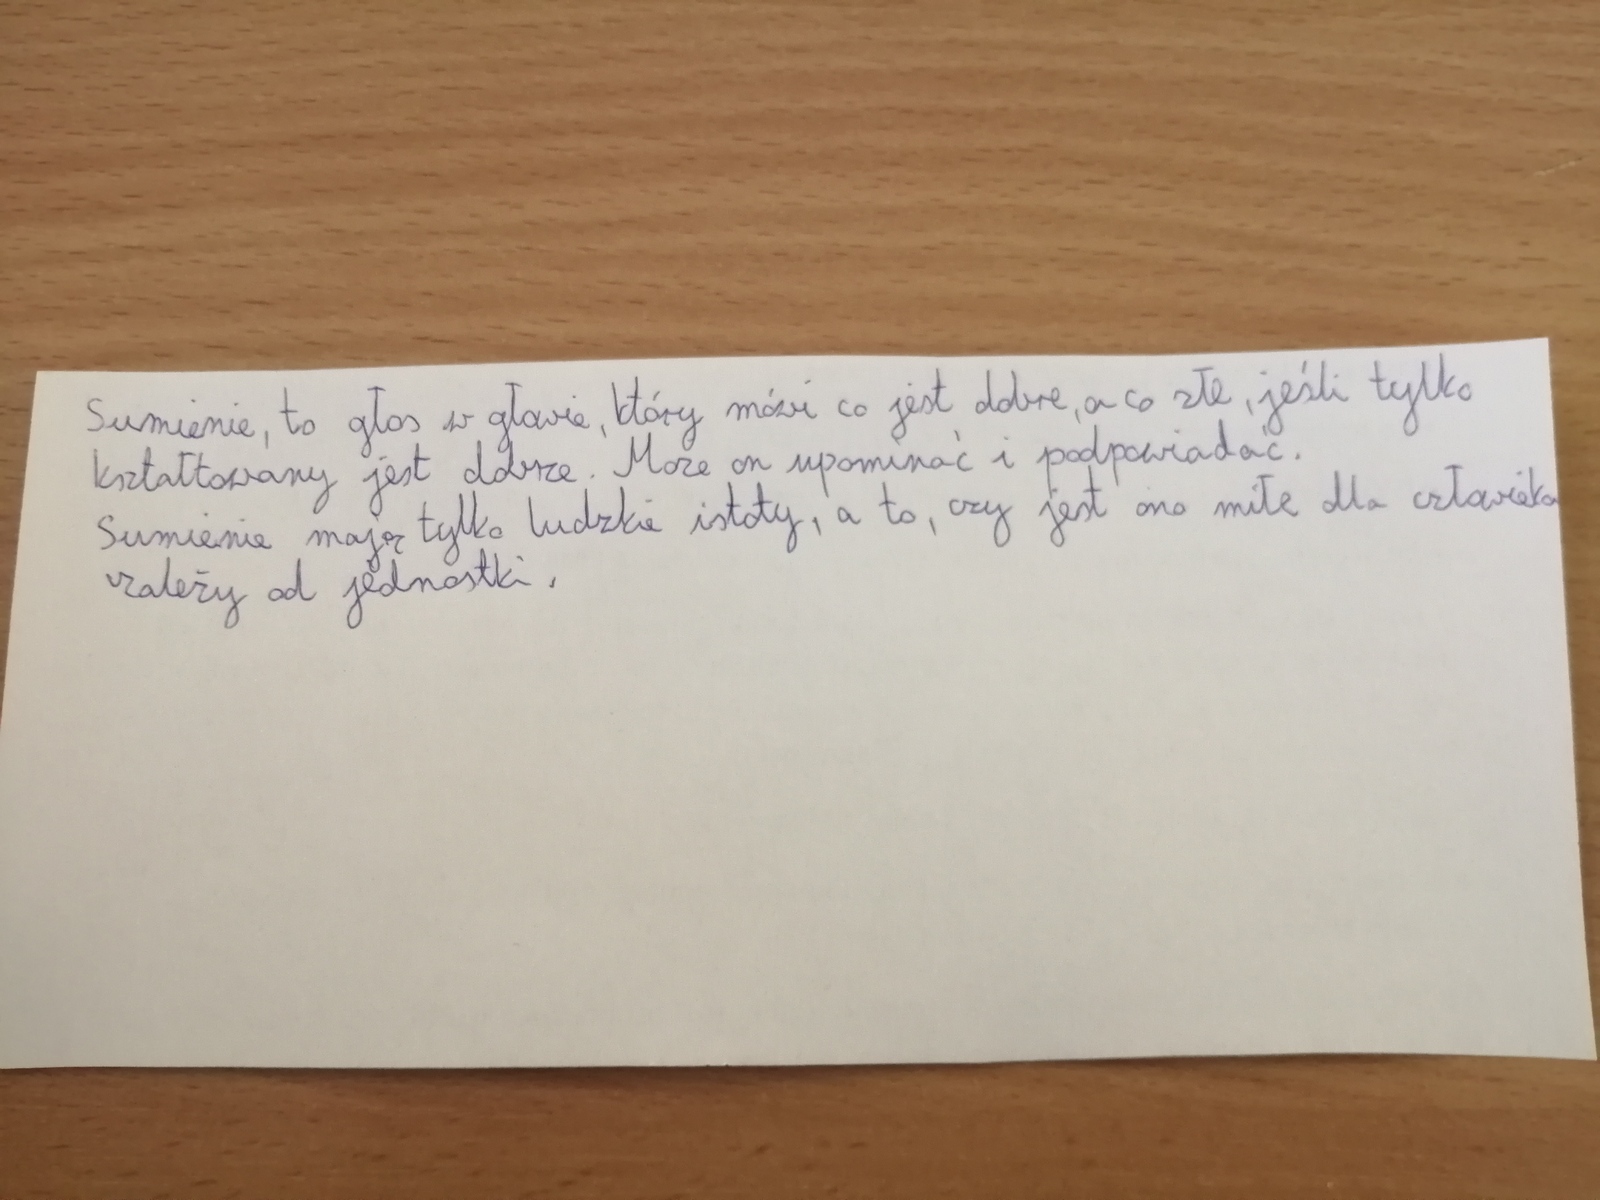 Sumienie, to głos w głowie, który mówi co jest dobre, a co złe, jeśli tylko
kształtowany jest dobrze. Może on upominać i podpowiadać.
Sumienie mają tylko ludzkie istoty, a to, czy jest ono miłe dla człowieka
zależy od jednostki.